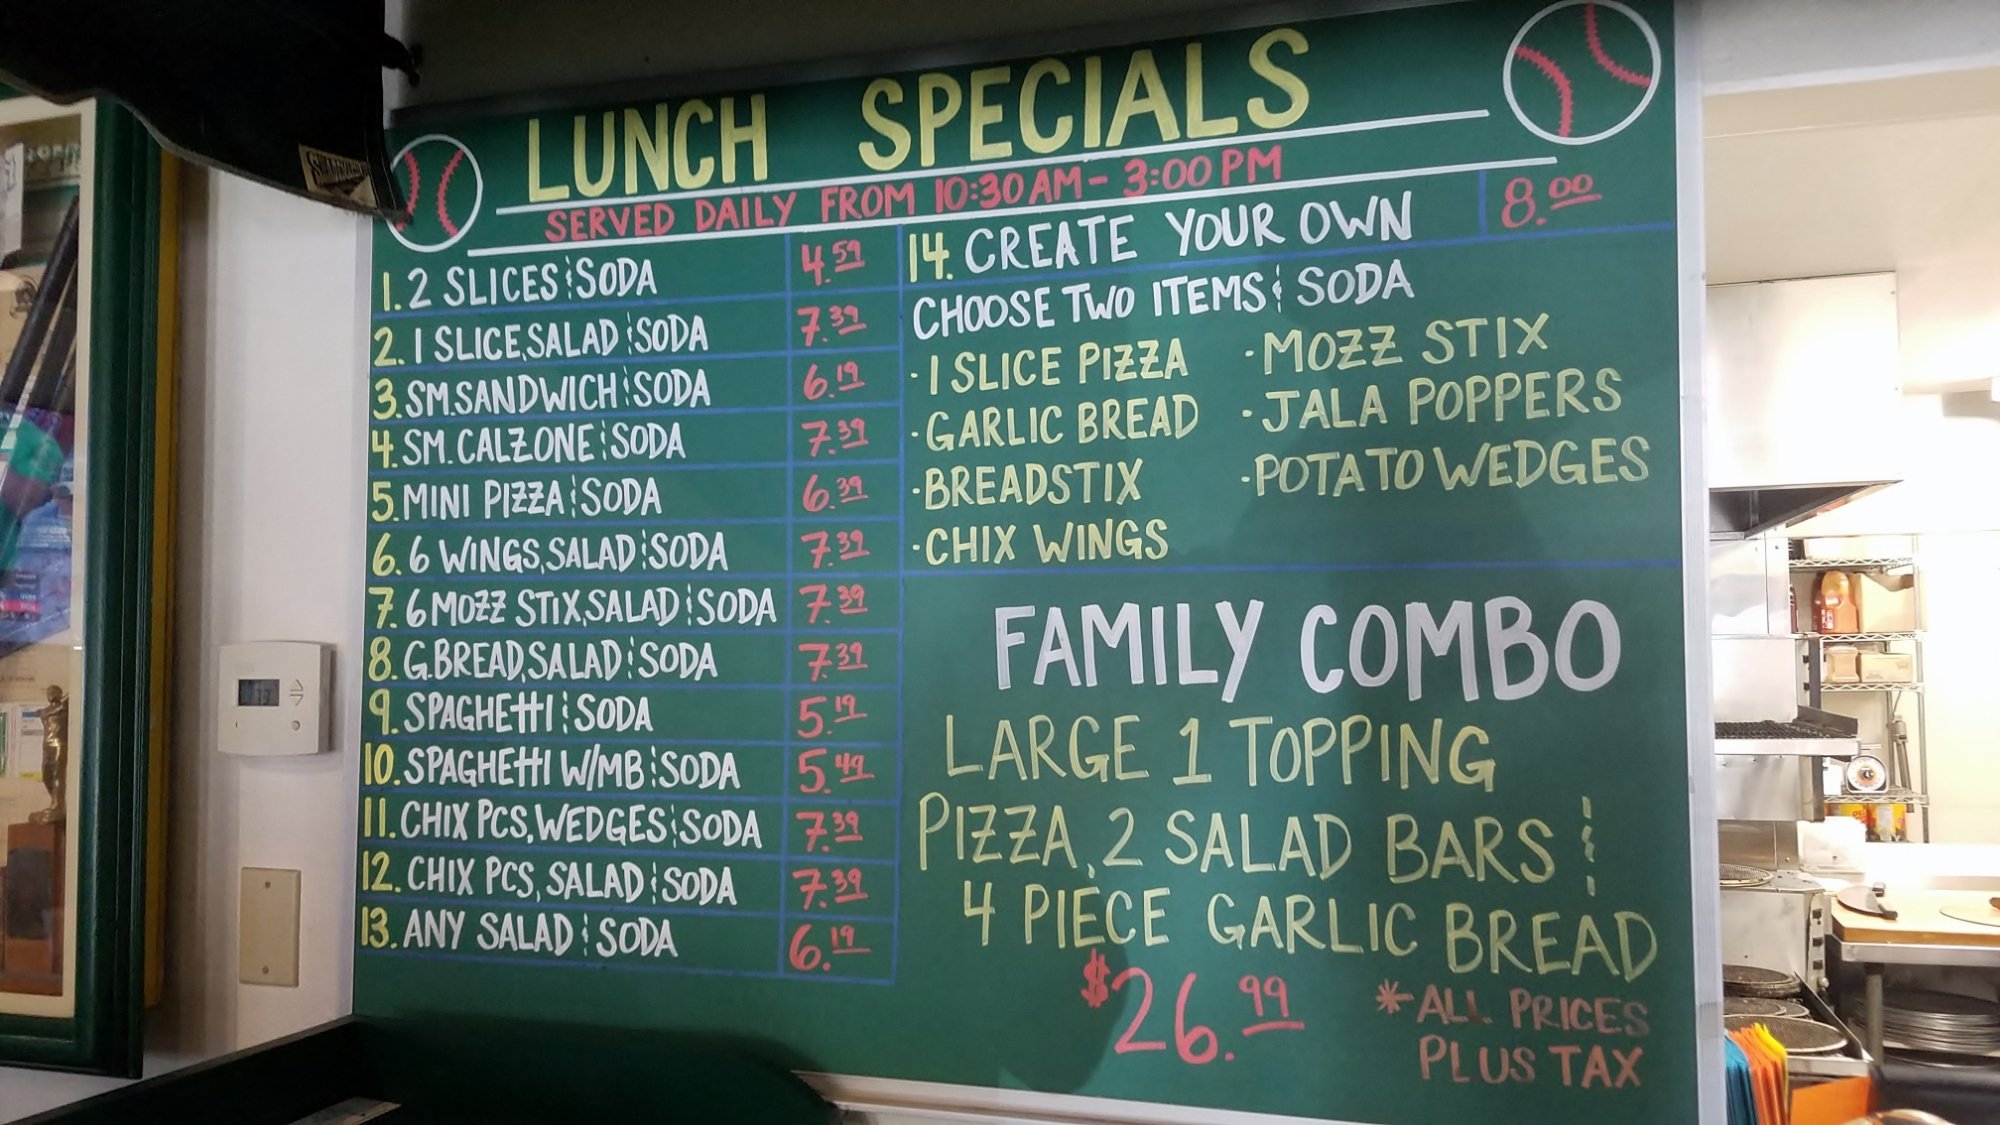 LUNCH SPECIALS
SERVED DAILY FROM 10:30AM - 3:00PM
1. 2 SLICES & SODA 4.59
2. 1 SLICE, SALAD & SODA 7.39
3. SM. SANDWICH & SODA 6.19
4. SM. CALZONE & SODA 7.39
5. MINI PIZZA & SODA 6.39
6. 6 WINGS, SALAD & SODA 7.39
7. 6 MOZZ STIX, SALAD & SODA 7.39
8. G.BREAD, SALAD & SODA 7.39
9. SPAGHETTI & SODA 5.19
10. SPAGHETTI W/MB & SODA 5.49
11. CHIX PCS, WEDGES & SODA 7.39
12. CHIX PCS, SALAD & SODA 7.39
13. ANY SALAD & SODA 6.19
14. CREATE YOUR OWN 8.00
CHOOSE TWO ITEMS & SODA
· 1 SLICE PIZZA
· GARLIC BREAD
· BREADSTIX
· CHIX WINGS
· MOZZ STIX
· JALA POPPERS
· POTATO WEDGES
FAMILY COMBO
LARGE 1 TOPPING
PIZZA, 2 SALAD BARS &
4 PIECE GARLIC BREAD
$26.99
* ALL PRICES
PLUS TAX